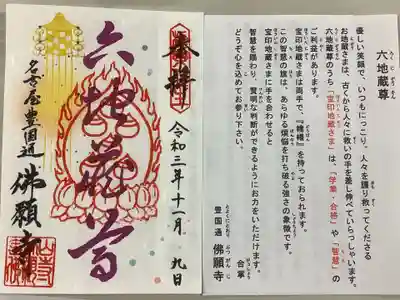 六地蔵尊
優しい笑顔で、いつもにっこり、人々を護り救ってくださる
お地蔵さまは、古くから人々に救いの手を差し伸べていらっしゃいます。
六地蔵尊のうち「宝印地蔵さま」は、「学業・合格」や「智慧」の
ご利益があります。
宝印地蔵さまは両手で、『幢幡』を持っておられます。
この智慧の旗は、あらゆる煩悩を打ち破る強さの象徴です。
宝印地蔵さまに手を合わせると
智慧を賜わり、賢明な判断ができるようにお力をいただけます。
どうぞ心を込めてお参り下さい。
合掌
豊国通 佛願寺
奉拝
令和三年十一月九日
六地蔵尊
名古屋豊国通 佛願寺